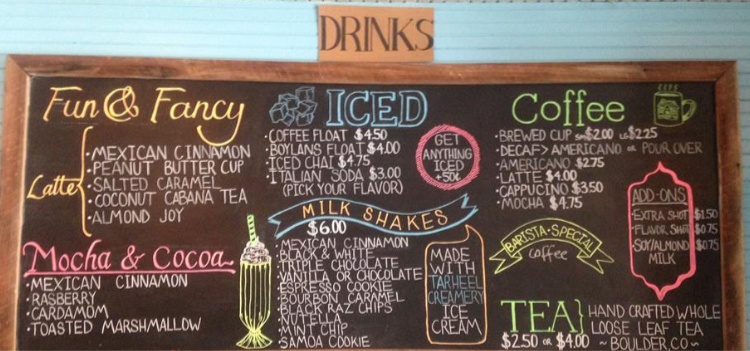 DRINKS
Fun & Fancy
Latte
MEXICAN CINNAMON
PEANUT BUTTER CUP
SALTED CARAMEL
COCONUT CABANA TEA
ALMOND JOY
Mocha & Cocoa
MEXICAN CINNAMON
RASBERRY
CARDAMOM
TOASTED MARSHMALLOW
ICED
COFFEE FLOAT $4.50
BOYLANS FLOAT $4.00
ICED CHAI $4.75
ITALIAN SODA $3.00
(PICK YOUR FLAVOR)
GET
ANYTHING
ICED
+50¢
MILK SHAKES
$6.00
MEXICAN CINNAMON
BLACK & WHITE
TRIPLE CHOCOLATE
VANILLA OR CHOCOLATE
ESPRESSO COOKIE
BOURBON CARAMEL
BLACK RAZ CHIPS
NUTELLA
MINT CHIP
SAMOA COOKIE
MADE
WITH
TARHEEL
CREAMERY
ICE
CREAM
Coffee
BREWED CUP sm $2.00 LG $2.25
DECAF> AMERICANO OR POUR OVER
AMERICANO $2.75
LATTE $4.00
CAPPUCINO $3.50
MOCHA $4.75
BARISTA·SPECIAL
coffee
ADD-ONS
EXTRA SHOT $1.50
FLAVOR SHOT $0.75
SOY/ALMOND $0.75
MILK
TEA
$2.50 OR $4.00
HAND CRAFTED WHOLE
LOOSE LEAF TEA
~ BOULDER, CO ~